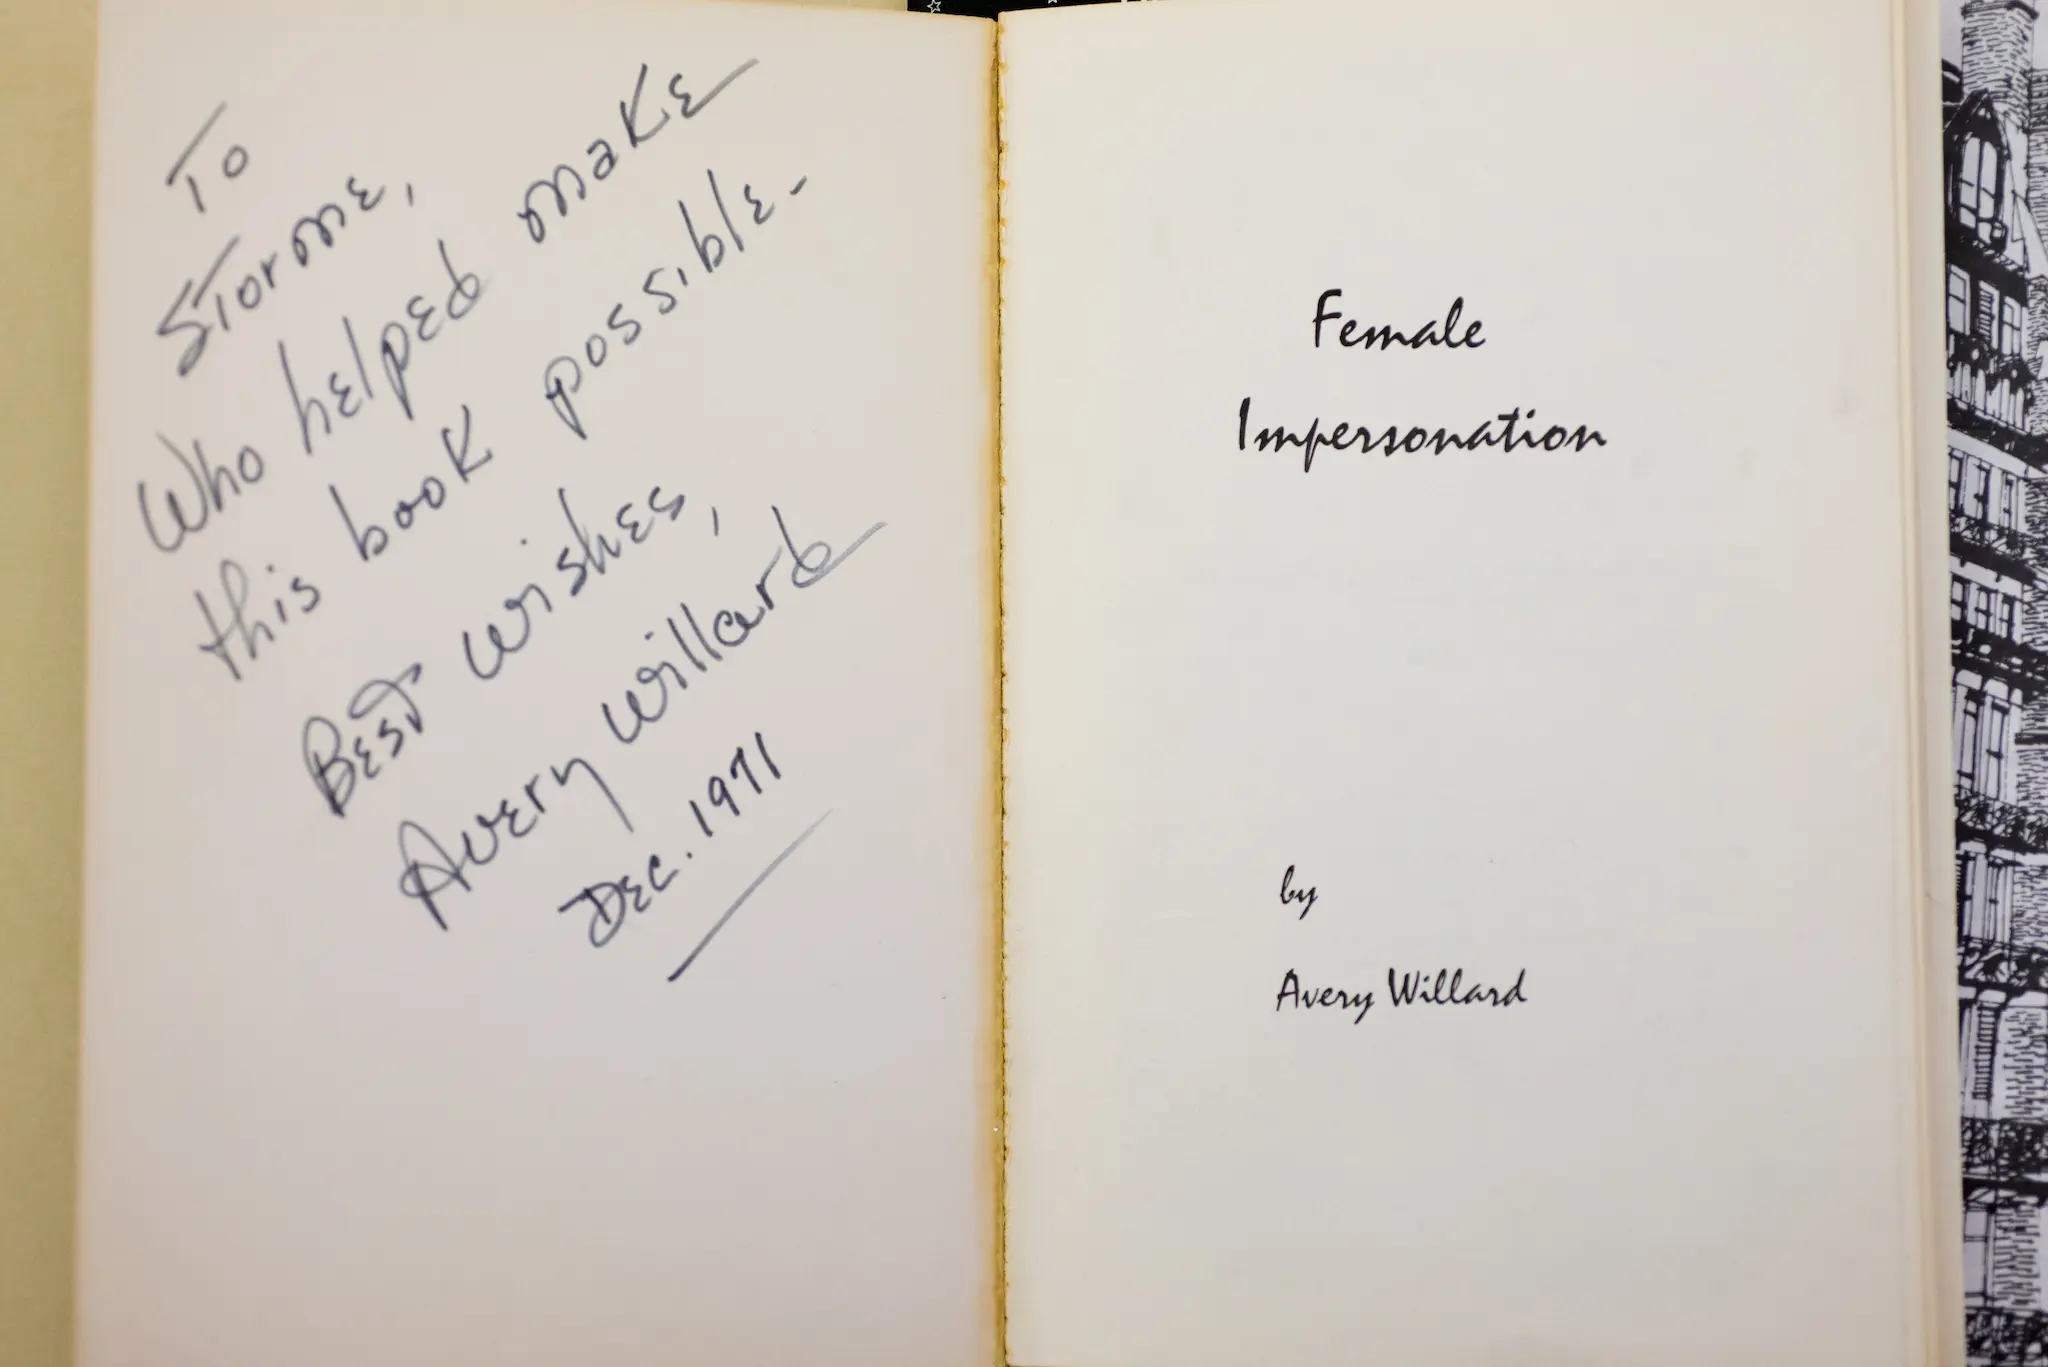 To
Storme,
Who helped make
this book possible.
Best wishes,
Avery Willard
Dec. 1971
Female
Impersonation
by
Avery Willard